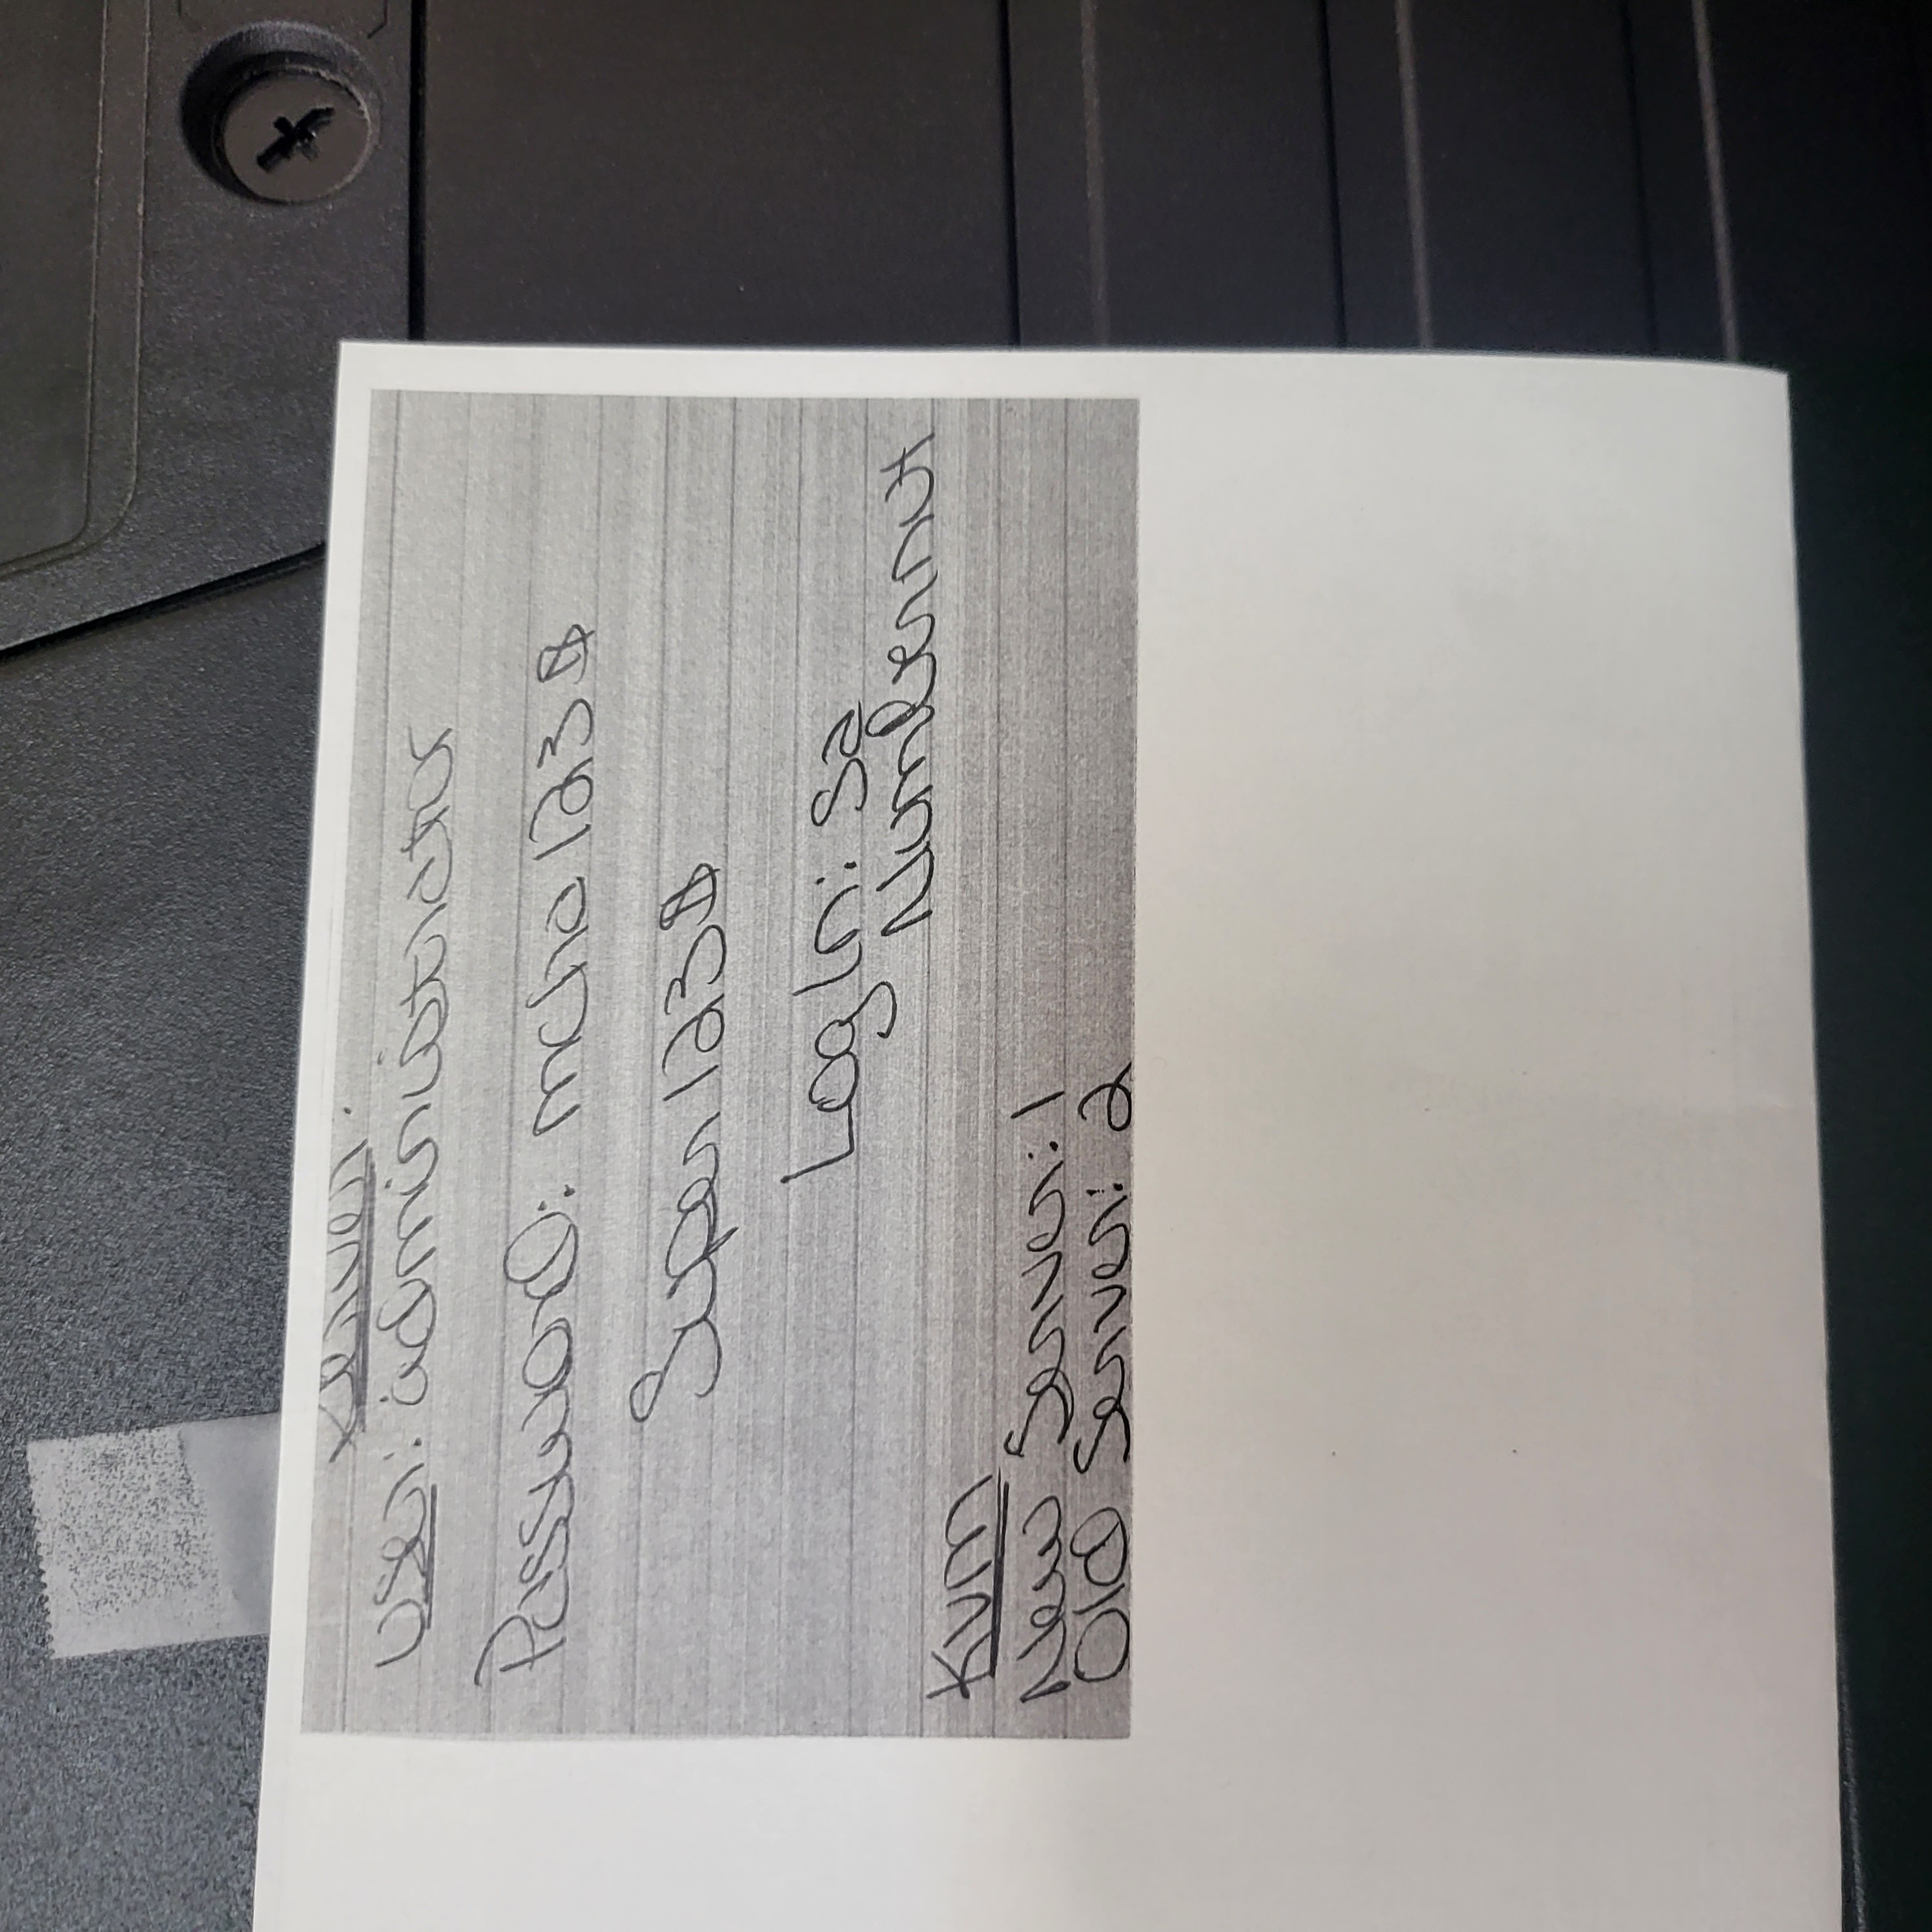 Server:
User: administrator
Password: mcha123$
Super123$
Log In: sa
Numbernut
KVM
New Server: 1
Old Server: 2